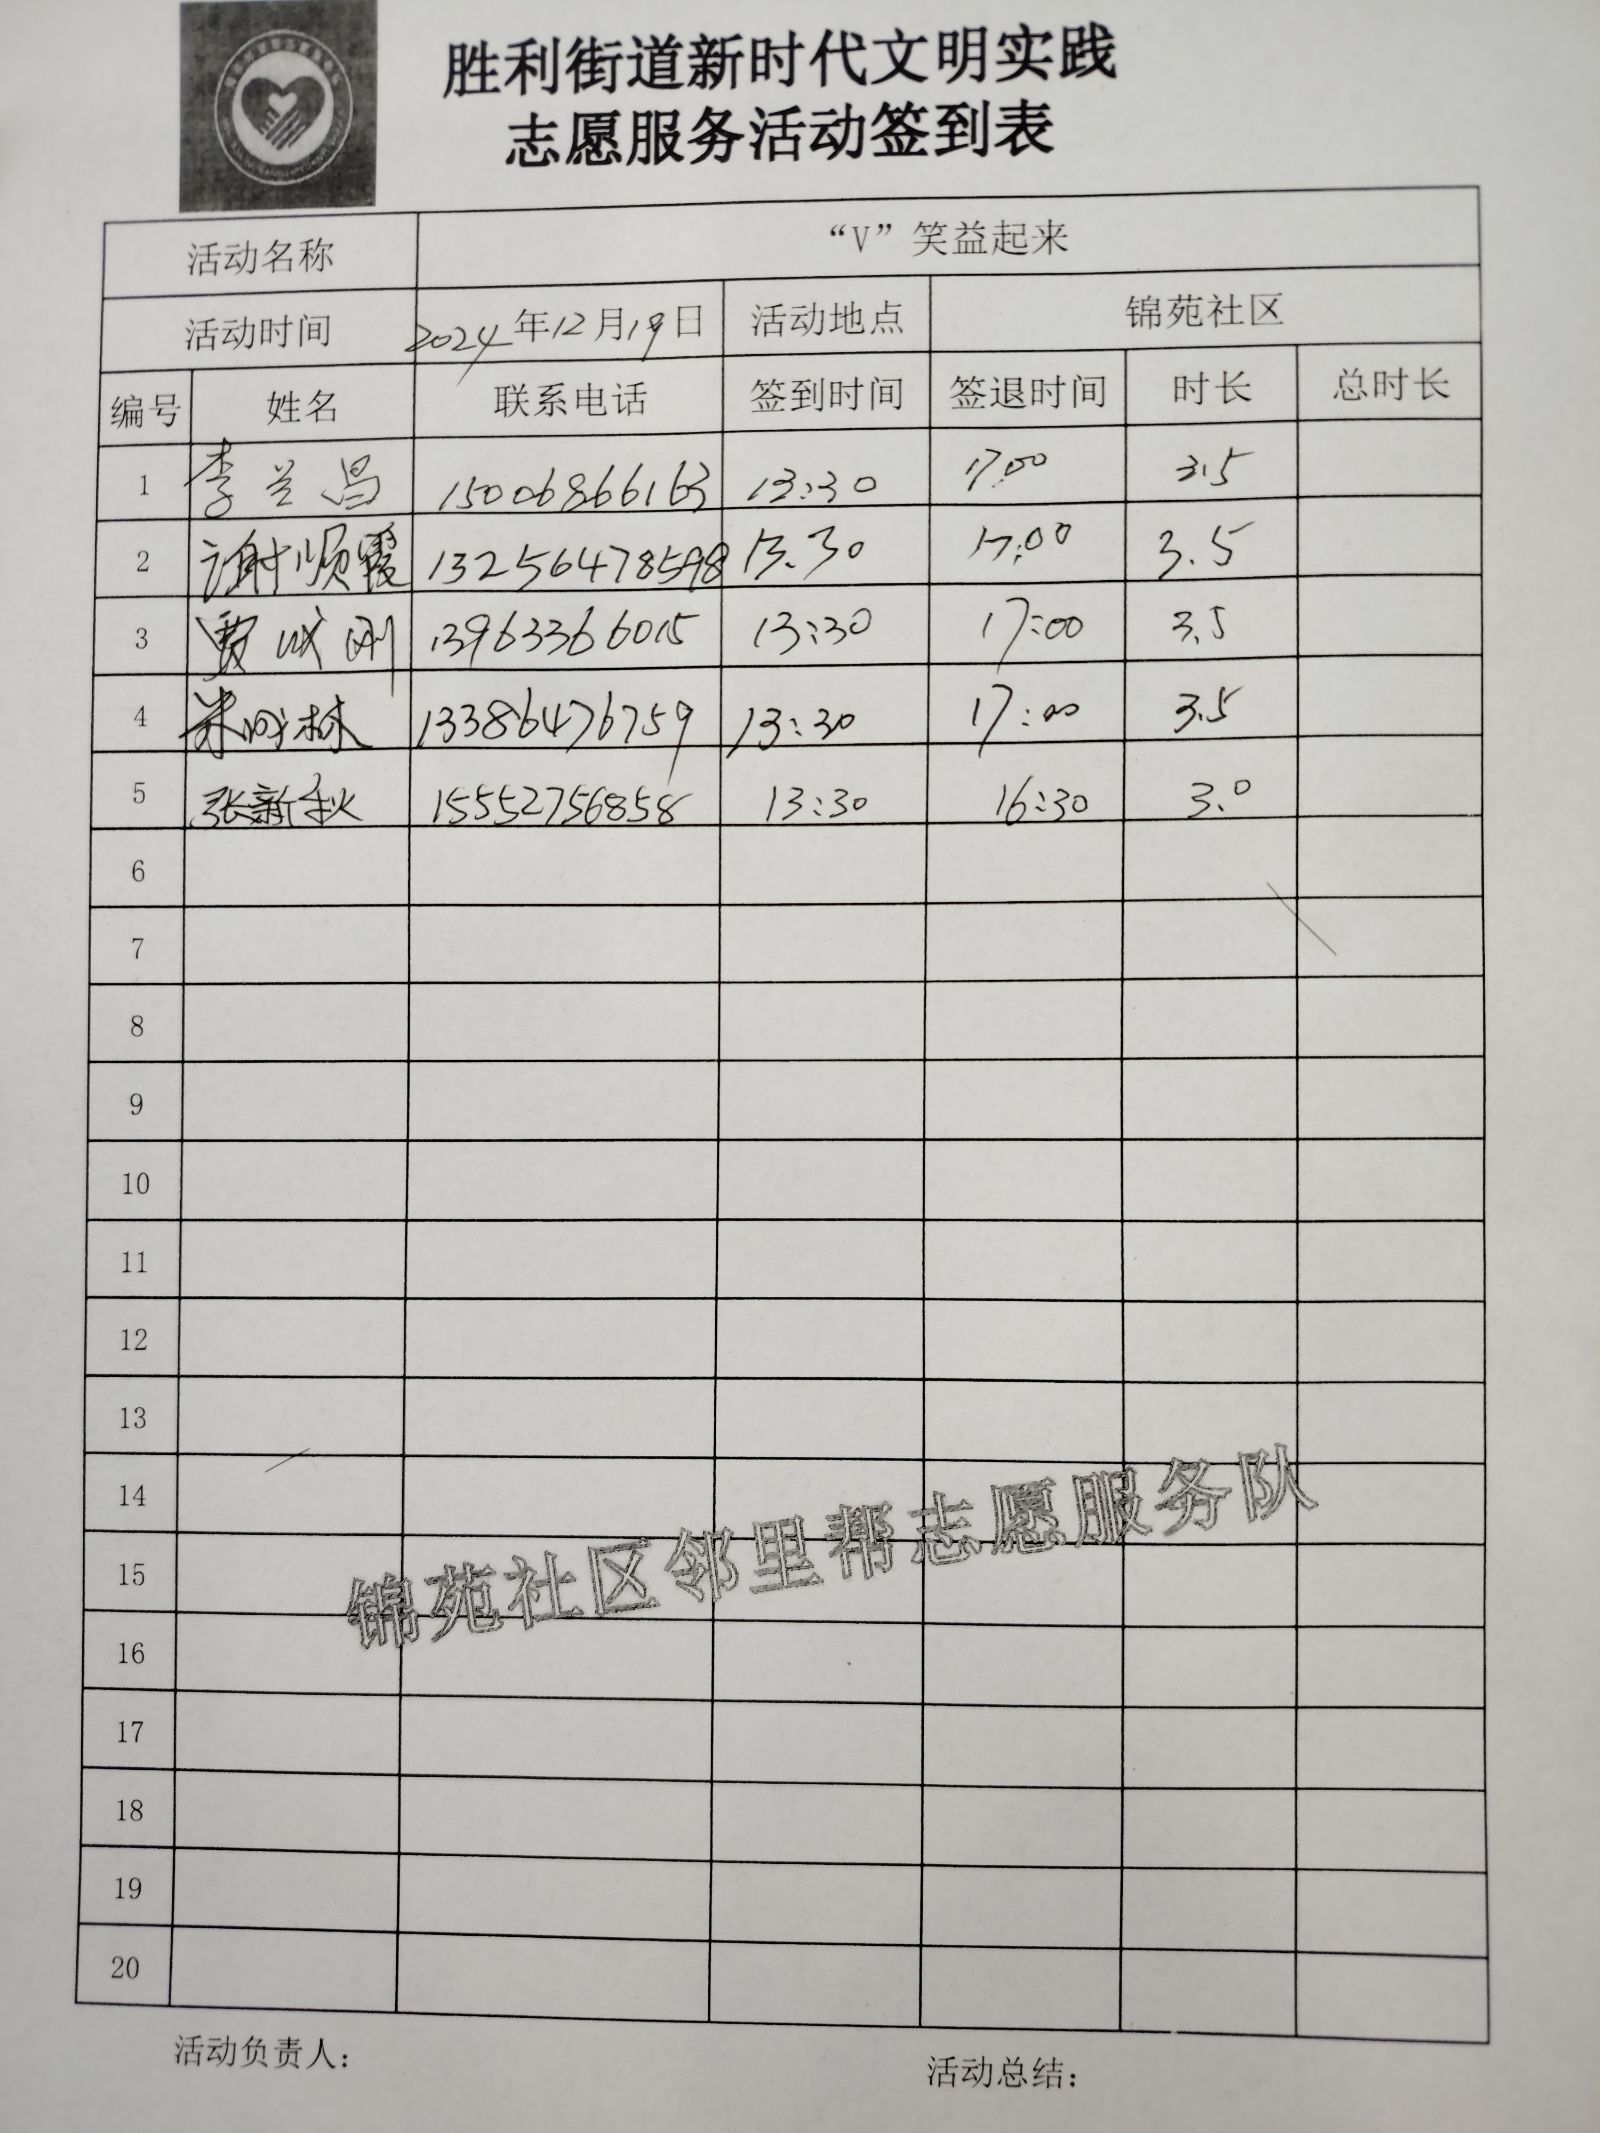 胜利街道新时代文明实践
志愿服务活动签到表
活动名称 “V”笑益起来
活动时间 2024年12月19日 活动地点 锦苑社区
编号 姓名 联系电话 签到时间 签退时间 时长 总时长
1 李兰昌 15006866163 13:30 17:00 3.5
2 谢顺霞 13256478598 13.30 17:00 3.5
3 贾成刚 13963366015 13:30 17:00 3.5
4 林 13386476759 13:30 17:00 3.5
5 张新秋 15552756858 13:30 16:30 3.0
6
7
8
9
10
11
12
13
14
15
16
17
18
19
20
锦苑社区邻里帮志愿服务队
活动负责人： 活动总结：